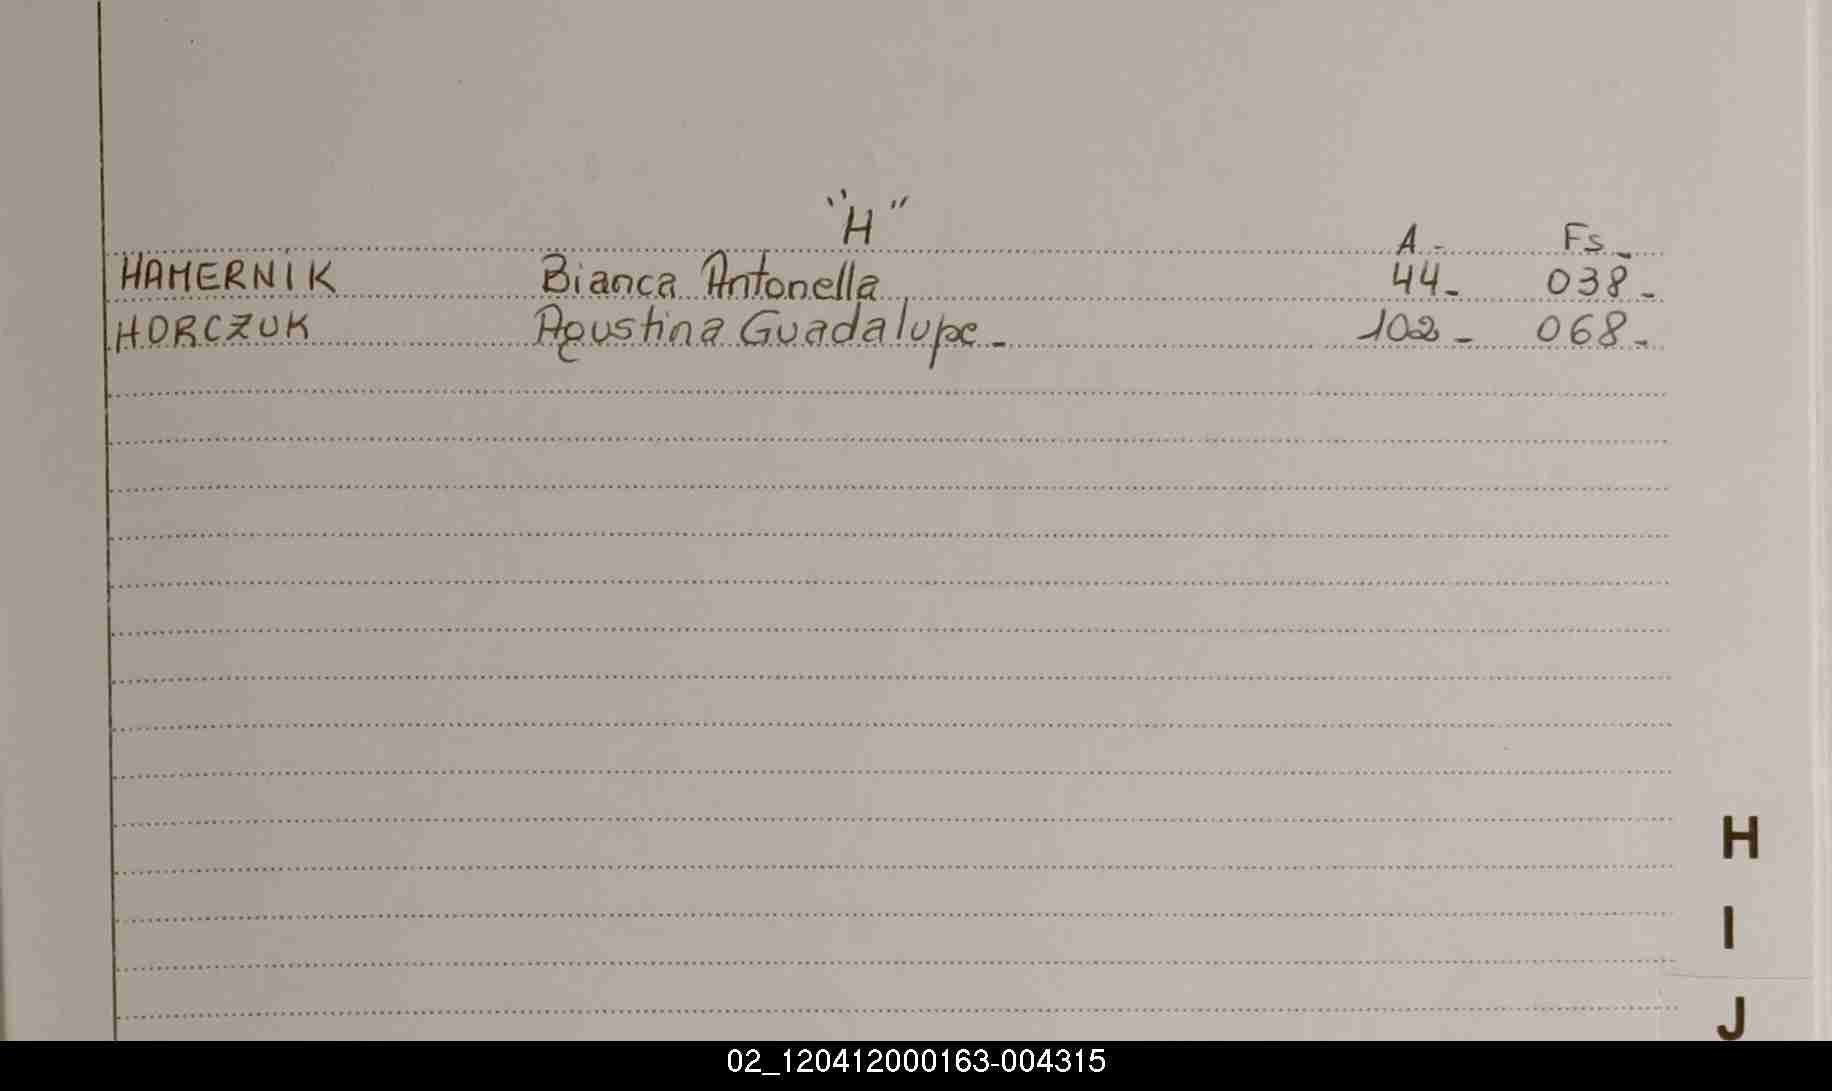 "H"
A.- Fs.-
HAMERNIK Bianca Antonella 44.- 038.-
HORCZUK Agustina Guadalupe.- 102.- 068.-
H
I
J
02_120412000163-004315